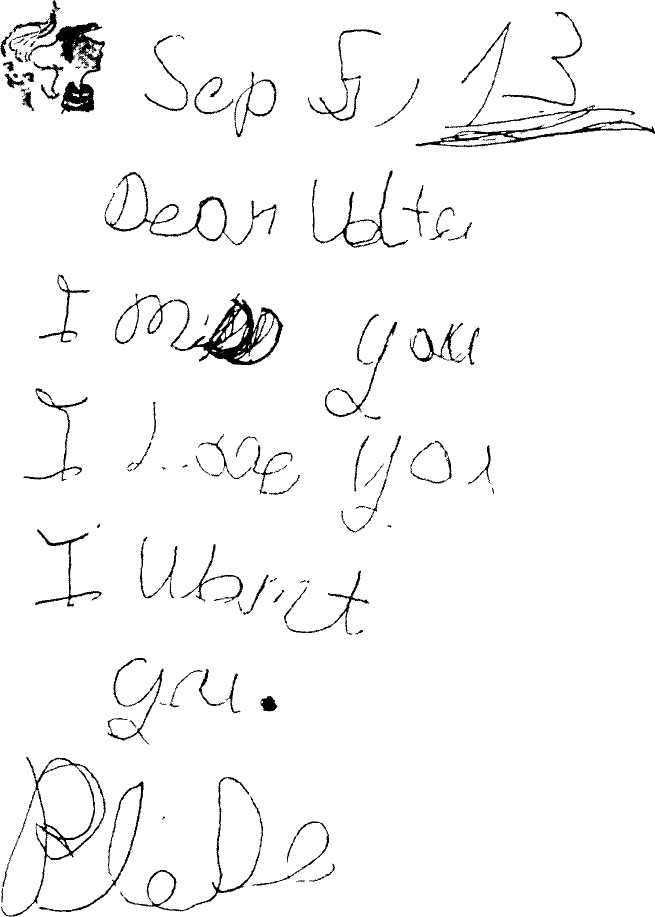 Sep 5, 13
Dear Walter
I miss you
I love you
I Want
you.